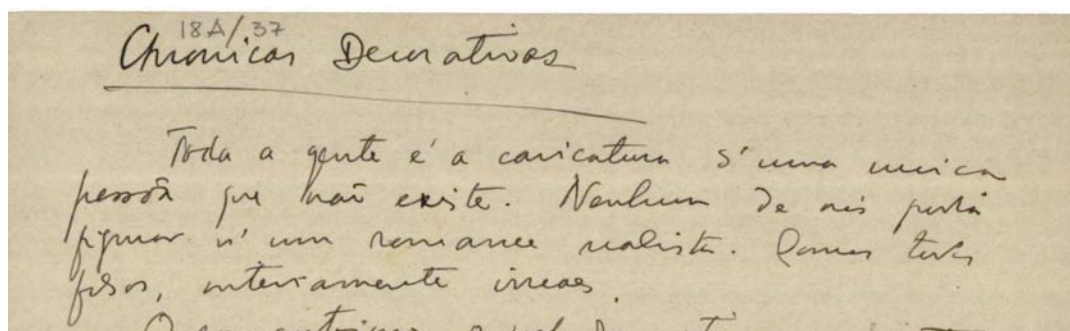 18A/37
Chronicas Decorativas
Toda a gente é a caricatura d'uma unica
pessôa que não existe. Nenhum de nós podia
figurar n'um romance realista. Somos todos
falsos, inteiramente irreaes.